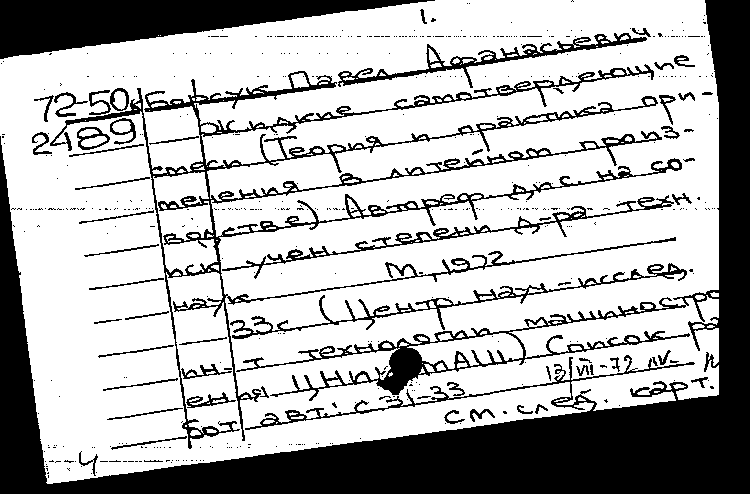 1.
72-50 Борсук, Павел Афанасьевич.
2489 Жидкие самотвердеющие
смеси (Теория и практика при-
менения в литейном произ-
водстве) Автореф. дис. на со-
иск. учен. степени д-ра техн.
наук. М., 1972.
33с. (Центр. науч.-исслед.
ин-т технологии машиностро
ения ЦНИИТМАШ.) Список ра
бот авт.: с 31-33. 13/VII-72
см. след. карт.
4